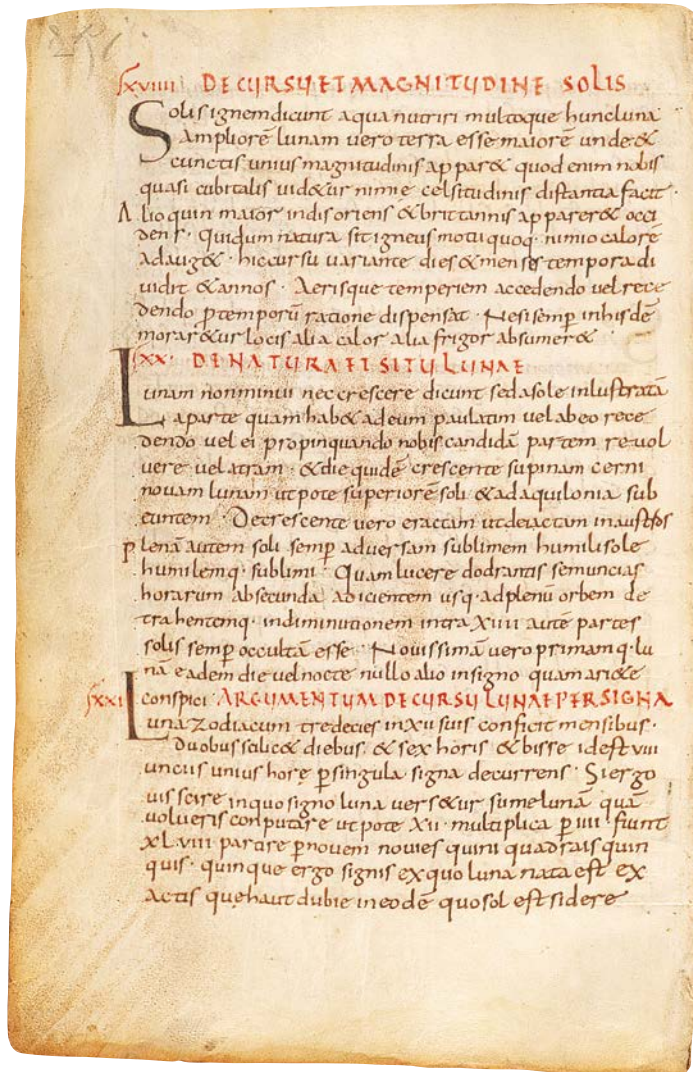 xviiii DE CURSU ET MAGNITUDINE SOLIS
Solis ignem dicunt aqua nutriri multoque hunc luna
ampliorē lunam vero terra esse maiorē unde &
cunctis unius magnitudinis appar& quod enim nobis
quasi cubitalis vid&ur nimie celsitudinis distantia facit ·
Alioquin maior indis oriens & brittannis apparer& occi
dens · Qui dum natura sit igneus motu quoq· nimio calorē
adaug& · hic cursu variante dies & menses tempora di
vidit & annos · Aerisque temperiem accedendo vel rece
dendo p temporū ratione dispensat · Ne si semp in hisdē
morar&ur locis alia calor alia frigor absumer&
xx · DE NATURA ET SITU LUNAE
Lunam non minui nec crescere dicunt sed a sole inlustratā
a parte quam hab& ad eum paulatim vel ab eo rece
dendo vel ei propinquando nobis candidā partem revol
vere vel atram · & die quidē crescente supinam cerni
novam lunam utpote superiorē soli & ad aquilonia sub
euntem · Decrescente vero erectam ut deiectam in austros
plenā autem soli semp adversam sublimem humili sole
humilemq· sublimi · Quam lucere dodrantis semuncias
horarum ab secunda adicientem usq· ad plenū orbem de
trahentemq· in diminutionem intra xiiii autē partes
solis semp occultā esse · Novissimā vero primamq· lu
nā eadem die vel nocte nullo alio in signo quam ari&e
conspici ARGUMENTUM DE CURSU LUNAE PER SIGNA
xxi Luna zodiacum tredecies in xii suis conficit mensibus ·
Duobus scilic& diebus & sex horis & bisse id est viii
unciis unius horę p singula signa decurrens · Si ergo
vis scire in quo signo luna vers&ur sume lunā quā
volueris conputare utpote xii · multiplica p iiii · fiunt
xl viii partire p novem novies quini quadrais quin
quis · quinque ergo signis ex quo luna nata est ex
actis que haut dubie in eodē quo sol est sidere